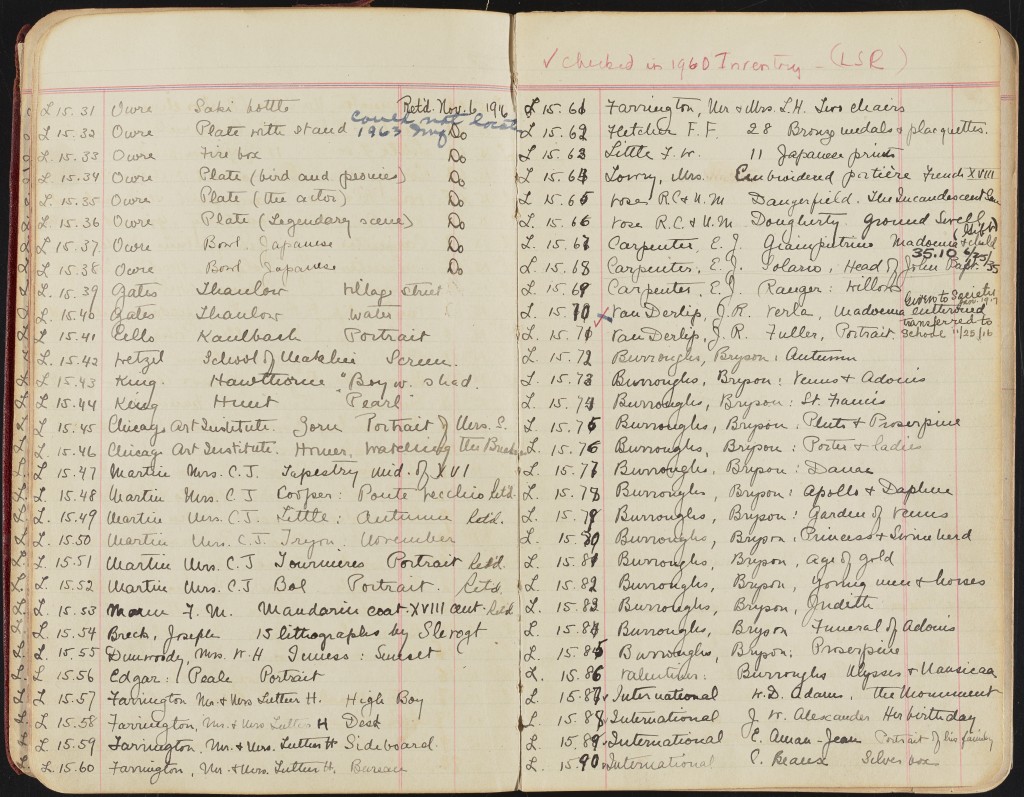 L 15.31 Owre Saki bottle Ret'd. Nov. 6, 1916
L 15.32 Owre Plate with stand Do
could not locate
1963 Inv
L. 15.33 Owre Fire box Do
L. 15.34 Owre Plate (bird and peonies) Do
L 15.35 Owre Plate (the actor) Do
L 15.36 Owre Plate (Legendary scene) Do
L 15.37 Owre Bowl, Japanese Do
L 15.38 Owre Bowl Japanese Do
L 15.39 Gates Thaulow Village street
L 15.40 Gates Thaulow Water
L 15.41 Cello Kaulbach Portrait
L 15.42 Hetzel School of Screen.
L 15.43 King. Hawthorne "Boy w. shad.
L 15.44 King Hunt "Pearl"
L 15.45 Chicago Art Institute. Zorn Portrait of Mrs. S.
L 15.46 Chicago Art Institute. Homer, Watching the
L 15.47 Martin Mrs. C.J. Tapestry mid. of XVI
L 15.48 Martin Mrs. C.J Cooper: Ponte Vecchio Ret'd.
L. 15.49 Martin Mrs. C.J. Little: Autumn Retd.
L 15.50 Martin Mrs. C.J. Tryon. November
L. 15.51 Martin Mrs. C.J Tournieres Portrait Retd.
L. 15.52 Martin Mrs. C.J Bol Portrait. Retd.
L. 15.53 Mann F.M. Mandarin coat. XVIII cent. Retd
L. 15.54 Breck, Joseph 15 lithographs by Slevogt
L 15.55 Dunwoody, Mrs. W.H Inness: Sunset
L 15.56 Edgar: Peale Portrait
L 15.57 Farrington Mr. & Mrs Luther H. High Boy
L. 15.58 Farrington, Mr. & Mrs Luther H Desk
L. 15.59 Farrington, Mr. & Mrs. Luther H Sideboard.
L. 15.60 Farrington, Mr. & Mrs. Luther H. Bureau
✓ checked in 1960 Inventory - (LSR)
L 15.61 Farrington, Mr & Mrs. L.H. Two chairs
L 15.62 Fletcher F.F. 28 Bronze medals & plaquettes.
L 15.63 Little F.W. 11 Japanese prints
L 15.64 Lowry, Mrs. Embroidered portière French XVIII
L 15.65 Vose R.C & N.M Dangerfield. The Incandescent
L 15.66 Vose R.C. & N.M. Dougherty Ground Swell
L 15.67 Carpenter, E.J. Giampetrino Madonna & child
(Gift)
35.10 6/25/35
L 15.68 Carpenter, E.J. Solario, Head of John Bapt.
L 15.69 Carpenter, E.J. Ranger: Willows
L. 15.70 Van Derlip, J.R. Verla, Madonna enthroned
Given to Society
L. 15.71 Van Derlip, J.R. Fuller, Portrait
transferred to
School 11/25/16
L. 15.72 Burroughs, Bryson: Autumn
L. 15.73 Burroughs, Bryson: Venus & Adonis
L. 15.74 Burroughs, Bryson: St. Francis
L. 15.75 Burroughs, Bryson, Pluto & Proserpine
L. 15.76 Burroughs, Bryson: Poets & ladies
L 15.77 Burroughs, Bryson: Danae
L 15.78 Burroughs, Bryson: Apollo & Daphne
L. 15.79 Burroughs, Bryson: Garden of Venus
L. 15.80 Burroughs, Bryson, Princess & Swineherd
L. 15.81 Burroughs, Bryson, Age of gold
L. 15.82 Burroughs, Bryson, Young men & horses
L. 15.83 Burroughs, Bryson, Judith
L. 15.84 Burroughs, Bryson Funeral of Adonis
L. 15.85 Burroughs, Bryson: Proserpine
L. 15.86 Valentiner: Burroughs Ulysses & Nausicaa
L. 15.87 International W.D. Adams, the Monument
L. 15.88 International J.W. Alexander Her birthday
L. 15.89 International E. Aman-Jean Portrait of his family
L. 15.90 International C. Beaux Silver box